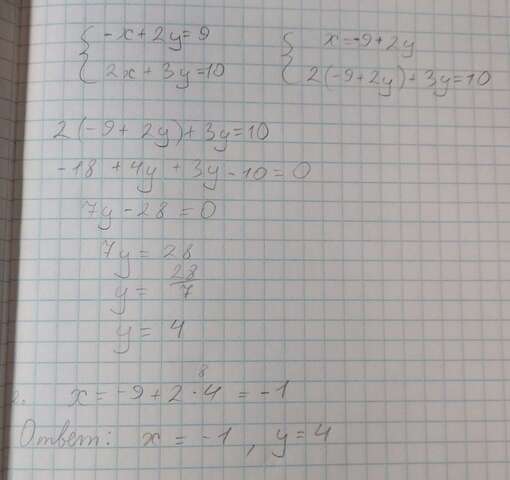 { -x + 2y = 9
{ 2x + 3y = 10
{ x = -9 + 2y
{ 2(-9 + 2y) + 3y = 10
2(-9 + 2y) + 3y = 10
-18 + 4y + 3y - 10 = 0
7y - 28 = 0
7y = 28
y = 28/7
y = 4
2. x = -9 + 2 · 4 = -1
8
Ответ: x = -1, y = 4